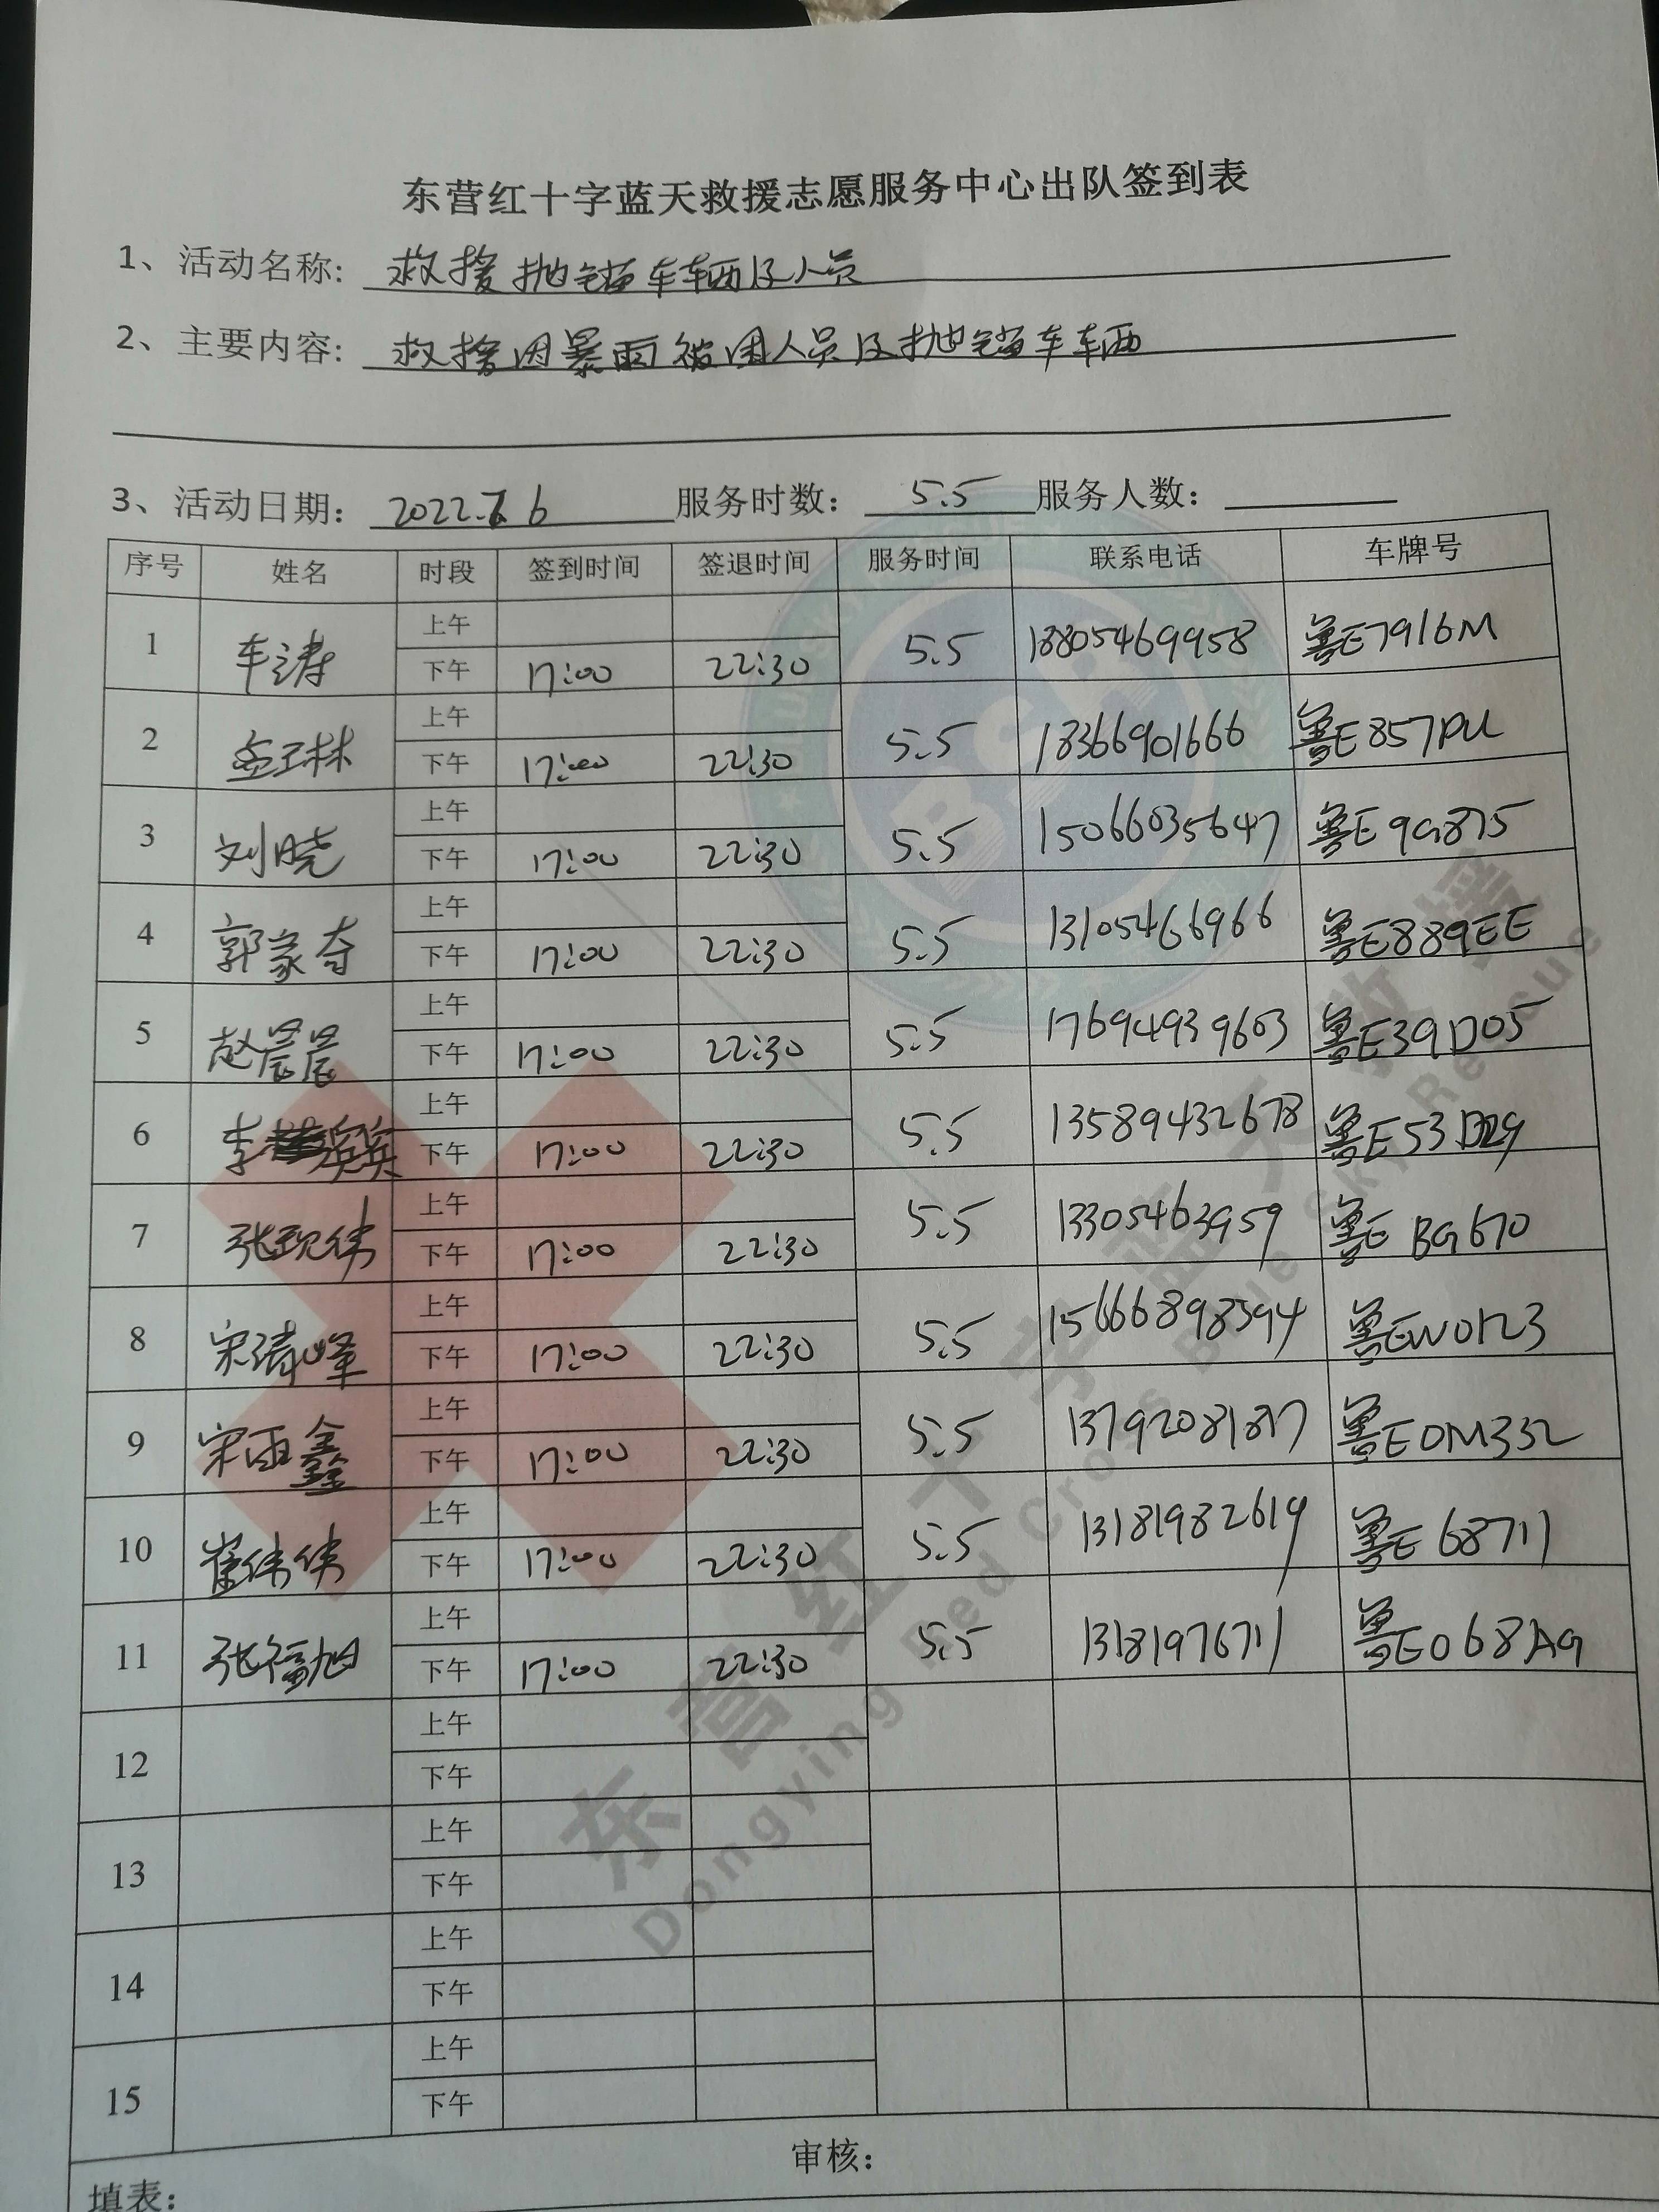 东营红十字蓝天救援志愿服务中心出队签到表
1、活动名称: 救援抛锚车车辆及人员
2、主要内容: 救援因暴雨被困人员及抛锚车车辆
3、活动日期: 2022.7.6 服务时数: 5.5 服务人数:
序号 姓名 时段 签到时间 签退时间 服务时间 联系电话 车牌号
上午
1 车涛 下午 17:00 22:30 5.5 18805469958 鲁E7916M
上午
2 孟正林 下午 17:00 22:30 5.5 18366901666 鲁E857PU
上午
3 刘晓 下午 17:00 22:30 5.5 15066035647 鲁E9G875
上午
4 郭家奇 下午 17:00 22:30 5.5 13105466966 鲁E889EE
上午
5 赵晨晨 下午 17:00 22:30 5.5 17694939603 鲁E39D05
上午
6 李 下午 17:00 22:30 5.5 13589432678 鲁E53D29
上午
7 张现伟 下午 17:00 22:30 5.5 13305463959 鲁E BG670
上午
8 宋清峰 下午 17:00 22:30 5.5 15666898394 鲁EW0123
上午
9 宋雨鑫 下午 17:00 22:30 5.5 13792081817 鲁E0M332
上午
10 崔伟伟 下午 17:00 22:30 5.5 13181982619 鲁E 68711
上午
11 张福旭 下午 17:00 22:30 5.5 13181976711 鲁E068AG
上午
12 下午
上午
13 下午
上午
14 下午
上午
15 下午
审核:
填表:
东营红十字蓝天救援
Dongying Red Cross Blue Sky Rescue